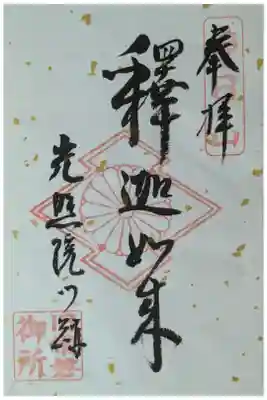 奉拝
釋迦如来
光照院門跡
常磐
御所